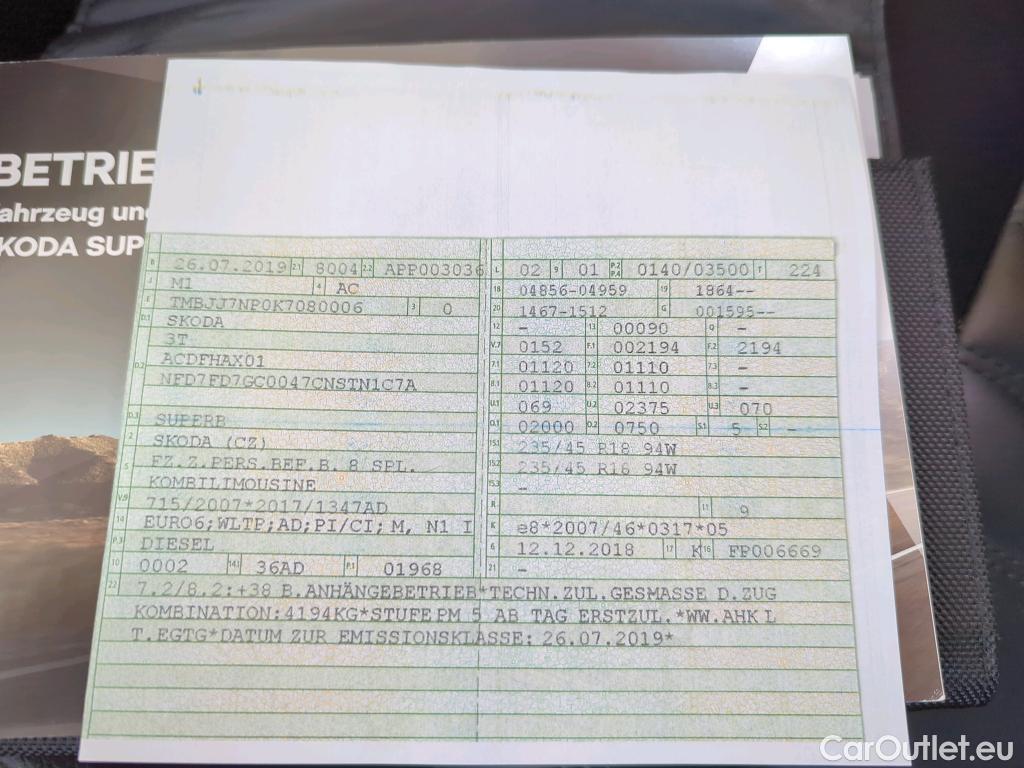 BETRIE
ahrzeug und
KODA SUP
B 26.07.2019 2.1 8004 2.2 APP003036
J M1 4 AC
E TMBJJ7NP0K7080006 3 0
D.1 SKODA
3T
D.2 ACDFHAX01
NFD7FD7GC0047CNSTN1C7A
D.3 SUPERB
2 SKODA (CZ)
5 FZ.Z.PERS.BEF.B. 8 SPL.
KOMBILIMOUSINE
V.9 715/2007*2017/1347AD
14 EURO6;WLTP;AD;PI/CI; M, N1 I
P.3 DIESEL
10 0002 14.1 36AD P.1 01968
L 02 9 01 P.2 P.4 0140/03500 T 224
18 04856-04959 19 1864--
20 1467-1512 G 001595--
12 - 13 00090 Q -
V.7 0152 F.1 002194 F.2 2194
7.1 01120 7.2 01110 7.3 -
8.1 01120 8.2 01110 8.3 -
U.1 069 U.2 02375 U.3 070
O.1 02000 O.2 0750 S.1 5 S.2 -
15.1 235/45 R18 94W
15.2 235/45 R18 94W
15.3 -
R 11 9
K e8*2007/46*0317*05
6 12.12.2018 17 K 16 FP006669
21 -
22 7.2/8.2:+38 B.ANHÄNGEBETRIEB*TECHN.ZUL.GESMASSE D.ZUG
KOMBINATION:4194KG*STUFE PM 5 AB TAG ERSTZUL.*WW.AHK L
T.EGTG*DATUM ZUR EMISSIONSKLASSE: 26.07.2019*
CarOutlet.eu